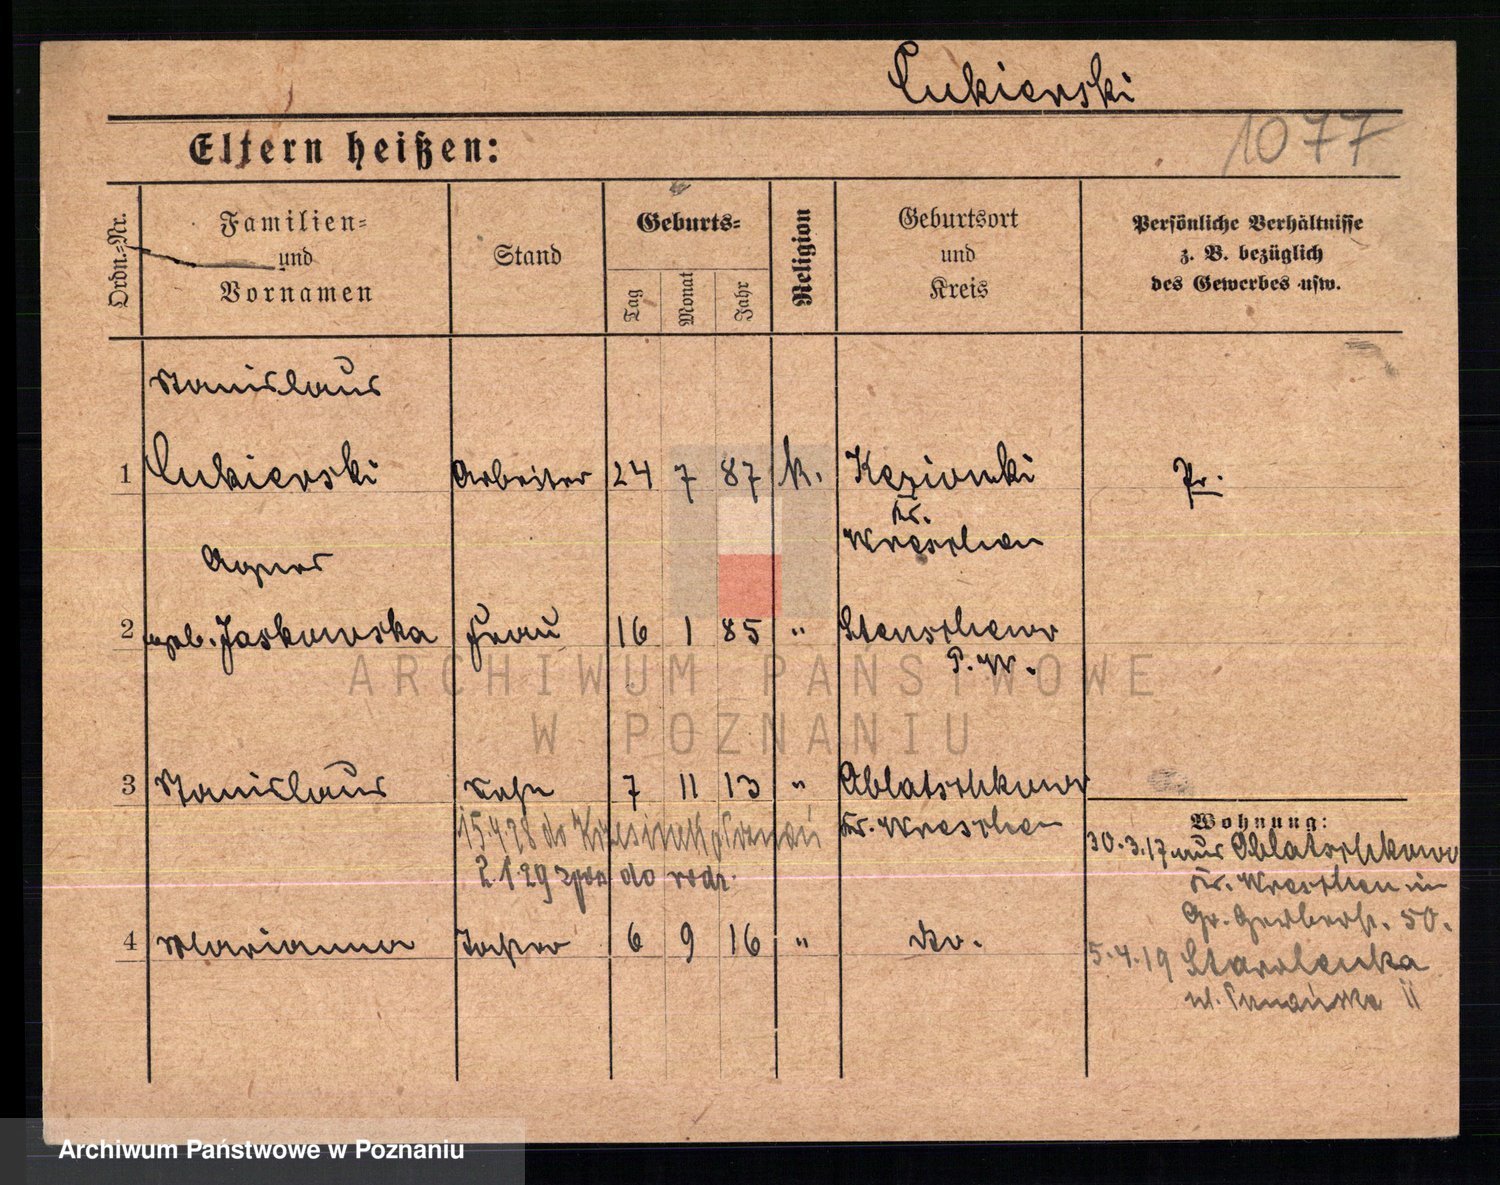 Lukierski
1077
Eltern heißen:
Ordn.-Nr.
Familien-
und
Vornamen
Stand
Geburts-
Tag
Monat
Jahr
Religion
Geburtsort
und
Kreis
Persönliche Verhältnisse
z. B. bezüglich
des Gewerbes usw.
Stanislaus
1 Lukierski Arbeiter 24 7 87 k. Pr.
Kr.
Wreschen
Agnes
2 geb. Jaskowska Frau 16 1 85 "
P. W.
3 Stanislaus Sohn 7 11 13 " Oblatschkowo
Kr. Wreschen
Wohnung:
15 4 28 do
30.3.17 aus Oblatschkowo
2.1.29 do rodz.
Kr. Wreschen in
Gr. Gerberstr. 50.
4 Marianna 6 9 16 " do.
5.4.19 Starolenka
ul.
ARCHIWUM PAŃSTWOWE
W POZNANIU
Archiwum Państwowe w Poznaniu